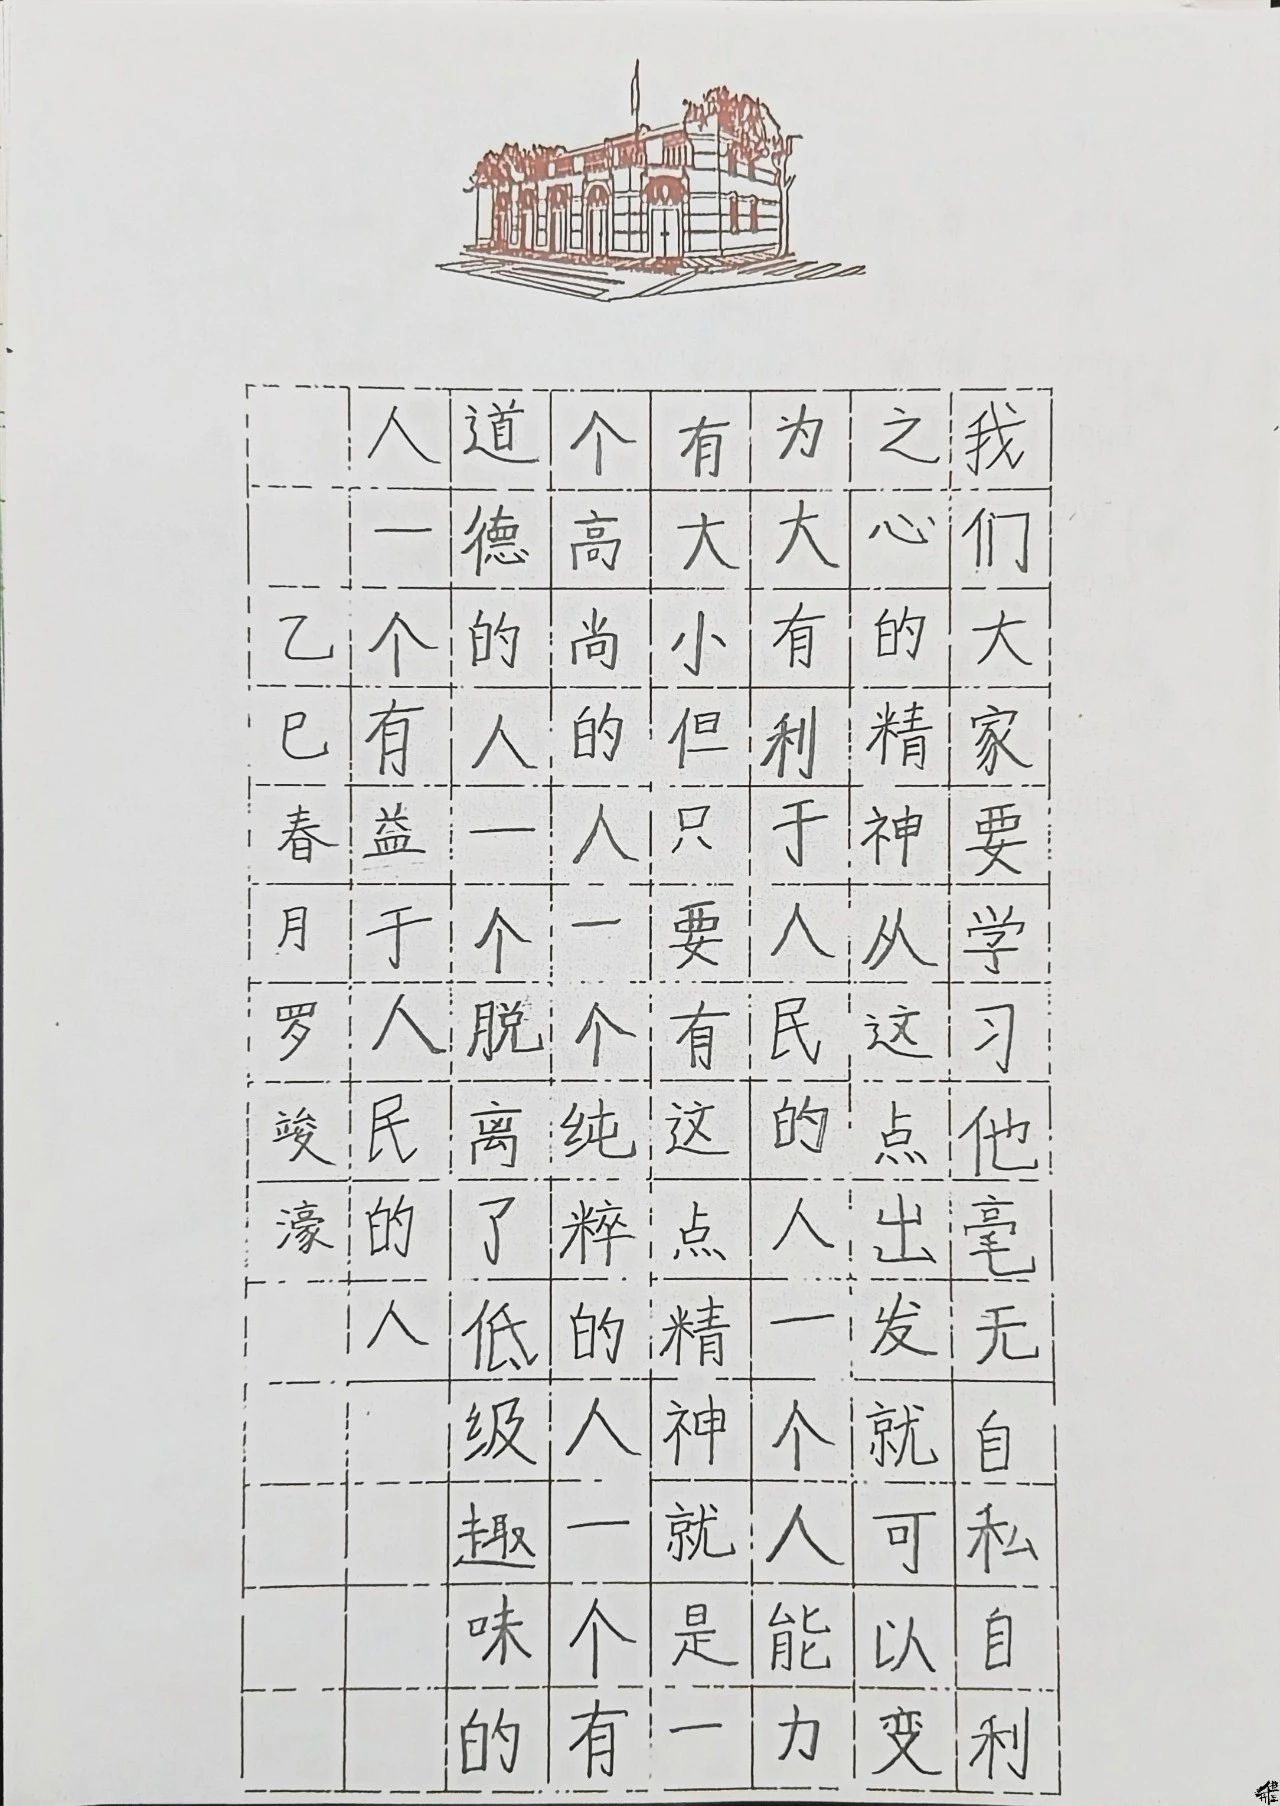 我们大家要学习他毫无自私自利
之心的精神从这点出发就可以变
为大有利于人民的人一个人能力
有大小但只要有这点精神就是一
个高尚的人一个纯粹的人一个有
道德的人一个脱离了低级趣味的
人一个有益于人民的人
乙巳春月罗竣濠